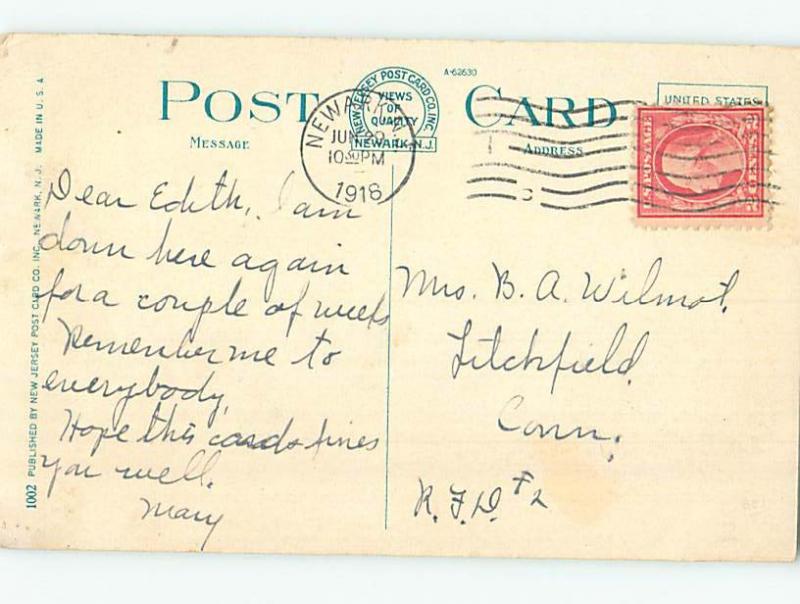 A-62630
POST CARD
NEW JERSEY POST CARD CO. INC.
VIEWS
OF
QUALITY
NEWARK, N.J.
UNITED STATES
MESSAGE
ADDRESS
NEWARK, N.J.
JUN 29
10 30 PM
1918
POSTAGE
2 CENTS 2
Dear Edith, I am
down here again
for a couple of weeks
Remember me to
everybody,
Hope this cards fines
you well.
Mary
Mrs. B. A. Wilmot,
Litchfield
Conn.
R.F.D. #2
1002 PUBLISHED BY NEW JERSEY POST CARD CO. INC. NEWARK, N. J. MADE IN U. S. A